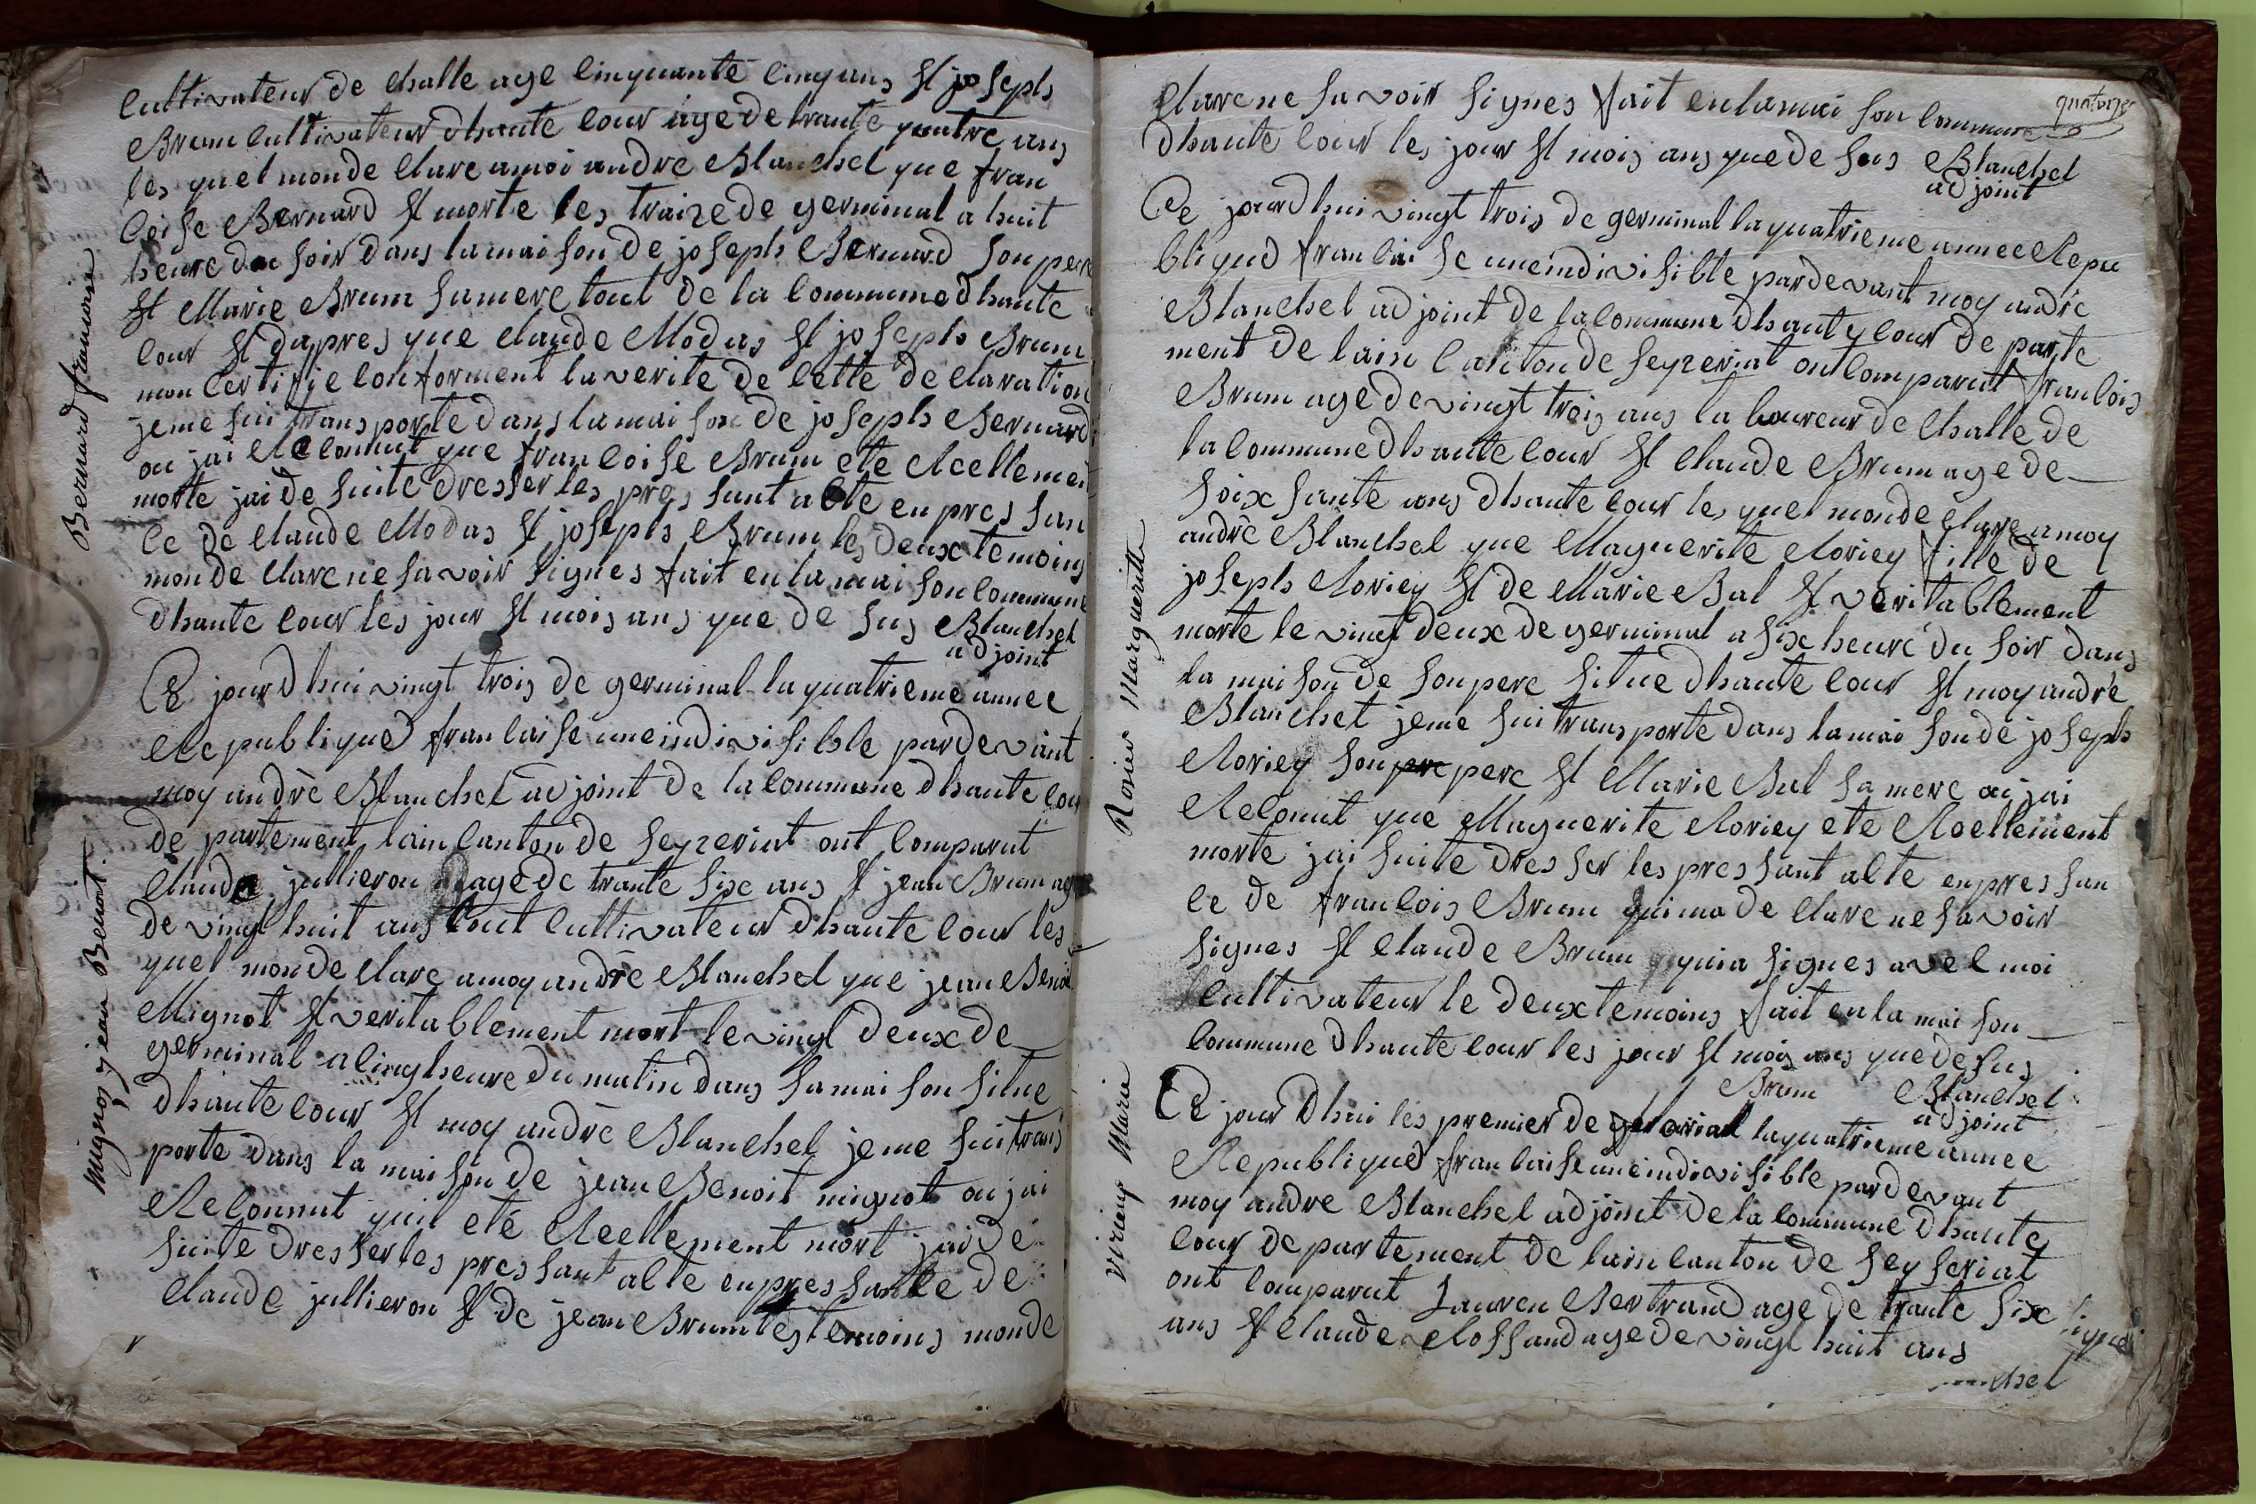 Bernard francoise
Cultivateur de Challe age Cinquante Cinq ans Et joseph
Brum Cultivateur dhaute Cour age de trante quatre ans
les quel monde Clare amoi andre Blanchet que fran
Coise Bernard Et morte les traize de germinal a huit
heure du soir dans la mai son de joseph Bernard son pere
Et Marie Brum sa mere tout de la Commune dhaute
Cour Et dapres que Claude Modas Et joseph Brum
mon Certifie Conforment la verite de Cette de Claration
jeme sui transporte dans la mai son de joseph Bernard
ou jai Reconnut que francoise Brum ete Reellemen
morte jai de suite dresser les pres sant acte en pres san
Ce de Claude Modas Et joseph Brum les deux temoins
mon de Clare ne savoir signes fait en la mai son Commune
dhaute Cour les jour Et mois ans que de sus Blanchet
adjoint
mignoz jean Benoit
Ce jourdhui vingt trois de germinal la quatrieme annee
Republique francaise une indivisible pardevant
moy andrè Blanchet adjoint de la Commune dhaute Cour
de partement lain Canton de seyzeriat ont Comparut
Claude jullieron age de trante six ans Et jean Brum age
de vingt huit ans tout Cultivateur dhaute Cour les
quel mon de Clare amoy andrè Blanchet que jean Benoit
Mignot Et veritablement mort le vingt deux de
germinal a Cinq heure du matin dans sa mai son situe
dhaute Cour Et moy andrè Blanchet jeme sui trans
porte dans la mai son de jean Benoit mignot ou jai
Reconnut quil eté Reellement mort jai de
suite dresser les pres sant acte en pres sante de
Claude jullieron Et de jean Brum les temoins monde
quatorze
Clare ne savoir signes fait en la mai son Commune
dhaute Cour les jour Et mois ans que de sus Blanchet
adjoint
Rosier marguerite
Ce jourdhui vingt trois de germinal la quatrieme annee Repu
blique francaise une indivisible pardevant moy andre
Blanchet adjoint de la Commune dhaute Cour de parte
ment de lain Canton de seyzeriat ont Comparut francois
Brum age de vingt trois ans laboureur de Challe de
la Commune dhaute Cour Et Claude Brum age de
soix sante ans dhaute Cour les quel monde Clare amoy
andrè Blanchet que Maguerite Roriey fille de
joseph Roriey Et de Marie Bal Et veritablement
morte le vingt deux de germinal a six heure du soir dans
la mai son de son pere situe dhaute Cour Et moy andrè
Blanchet jeme sui transporte dans la mai son de joseph
Roriey son pre pere Et Marie Bal sa mere ou jai
Reconut que Maguerite Roriey ete Reellement
morte jai suite dresser les pres sant acte en pres san
Ce de francois Brum qui ma de Clare ne savoir
signes Et Claude Brum qui a signes avec moi
Cultivateur le deux temoins fait en la mai son
Commune dhaute Cour les jour Et mois ans que de sus
Brum Blanchet
adjoint
virieux Marie
Ce jour dhui les premier de florial la quatrieme annee
Republique francaise une indivisible pardevant
moy andre Blanchet adjoint de la Commune dhaute
Cour departement de lain Canton de seyseriat
ont Comparut Lauren Bertrand age de trante six
ans Et Claude Rossand age de vingt huit ans
signes
chet